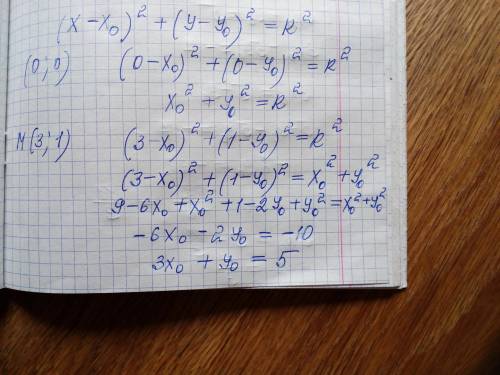 (x-x₀)² + (y-y₀)² = R²
(0;0) (0-x₀)² + (0-y₀)² = R²
x₀² + y₀² = R²
M(3;1) (3-x₀)² + (1-y₀)² = R²
(3-x₀)² + (1-y₀)² = x₀² + y₀²
9-6x₀+x₀²+1-2y₀+y₀²=x₀²+y₀²
-6x₀ -2y₀ = -10
3x₀ + y₀ = 5